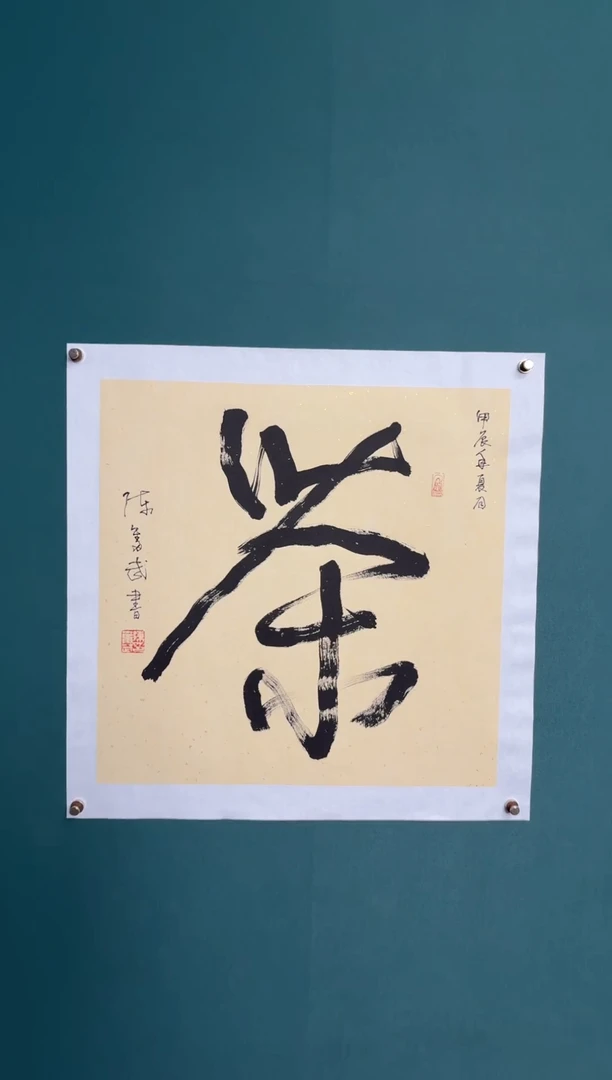 甲辰年夏月
茶
陈
武书